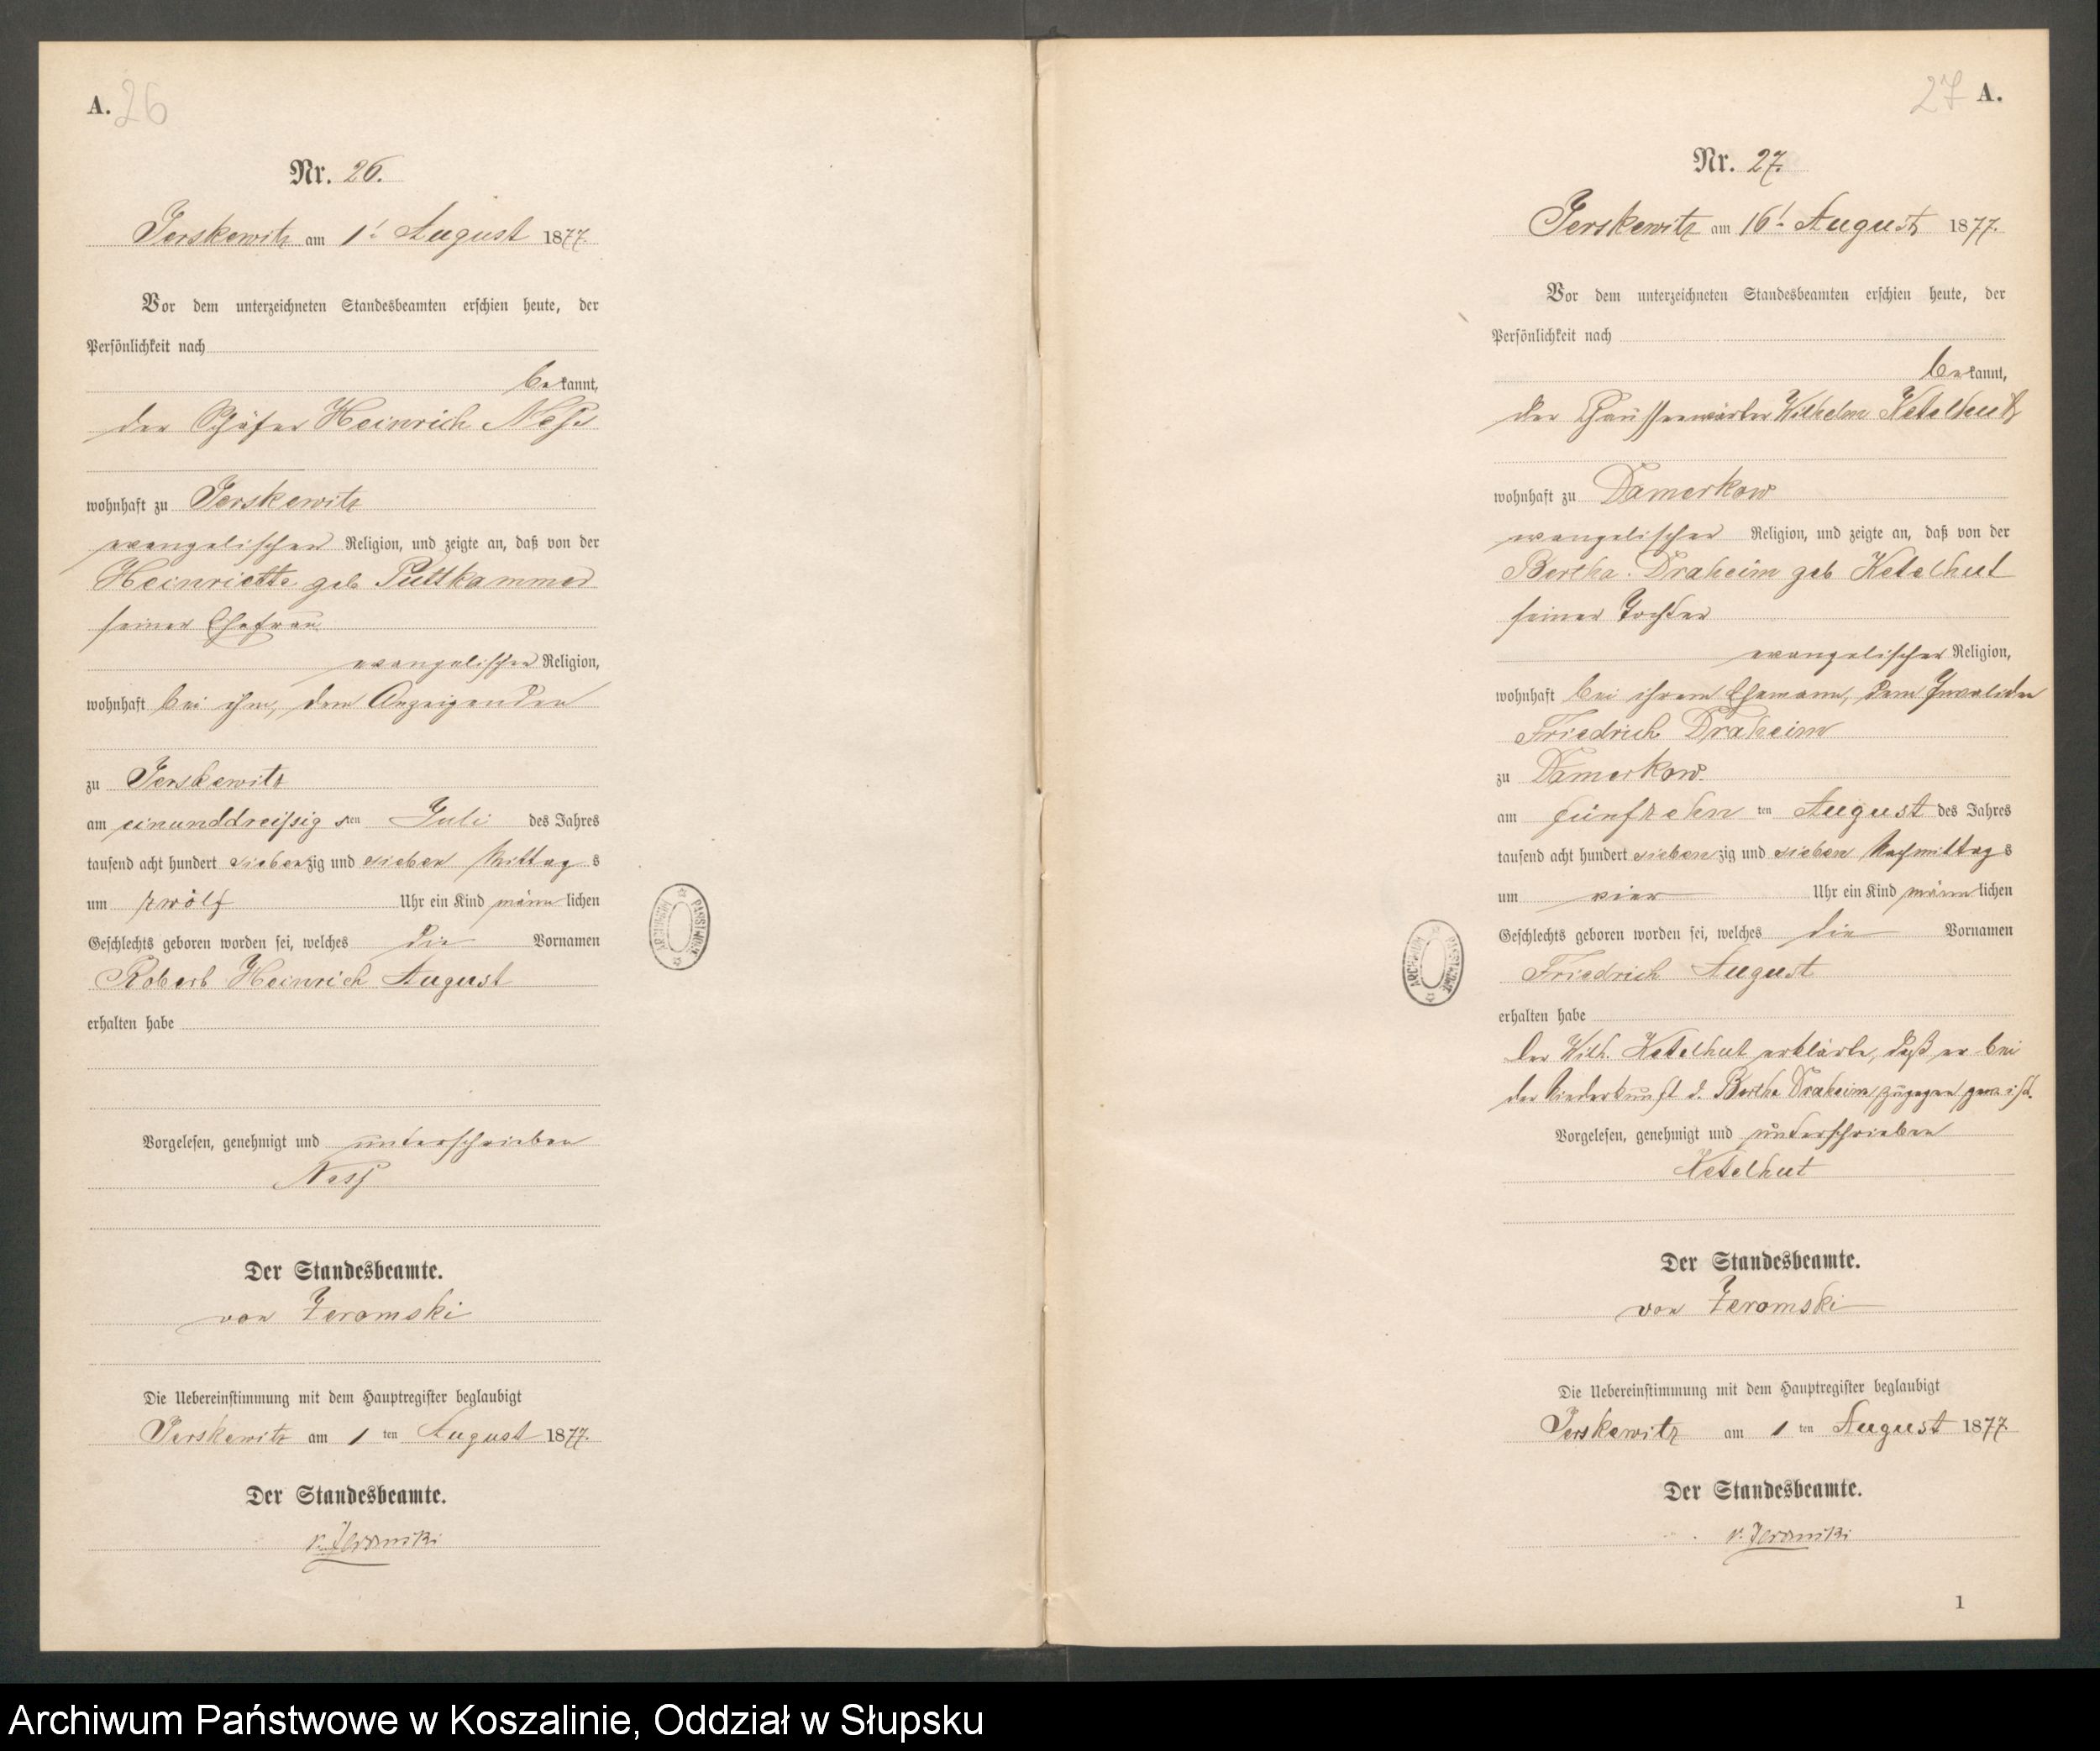 A. 26
Nr. 26.
Jerskewitz am 1t August 1877.
Vor dem unterzeichneten Standesbeamten erschien heute, der
Persönlichkeit nach
bekannt,
der Schäfer Heinrich Ness
wohnhaft zu Jerskewitz
evangelischer Religion, und zeigte an, daß von der
Heinriette geb Puttkammer
seiner Ehefrau
evangelischer Religion,
wohnhaft bei ihm, dem Anzeigenden
zu Jerskewitz
am einunddreißigsten Juli des Jahres
tausend acht hundert siebenzig und sieben Mittags
um zwölf Uhr ein Kind männlichen
Geschlechts geboren worden sei, welches die Vornamen
Robert Heinrich August
erhalten habe
Vorgelesen, genehmigt und unterschrieben
Ness
Der Standesbeamte.
von Zeromski
Die Uebereinstimmung mit dem Hauptregister beglaubigt
Jerskewitz am 1 ten August 1877.
Der Standesbeamte.
v. Zeromski
ARCHIWUM PAŃSTWOWE
27 A.
Nr. 27.
Jerskewitz am 16t August 1877.
Vor dem unterzeichneten Standesbeamten erschien heute, der
Persönlichkeit nach
bekannt,
der Chausseewärter Wilhelm Ketelhut
wohnhaft zu Damerkow
evangelischer Religion, und zeigte an, daß von der
Bertha Draheim geb Ketelhut
seiner Tochter
evangelischer Religion,
wohnhaft bei ihrem Ehemann, dem Invaliden
Friedrich Draheim
zu Damerkow.
am fünfzehn ten August des Jahres
tausend acht hundert siebenzig und sieben Nachmittags
um vier Uhr ein Kind männlichen
Geschlechts geboren worden sei, welches die Vornamen
Friedrich August
erhalten habe
Der Wilh. Ketelhut erklärte, daß er bei
der Niederkunft d. Bertha Draheim zugegen gew. ist.
Vorgelesen, genehmigt und unterschrieben
Ketelhut
Der Standesbeamte.
von Zeromski
Die Uebereinstimmung mit dem Hauptregister beglaubigt
Jerskewitz am 1 ten August 1877.
Der Standesbeamte.
v. Zeromski
1
ARCHIWUM PAŃSTWOWE
Archiwum Państwowe w Koszalinie, Oddział w Słupsku